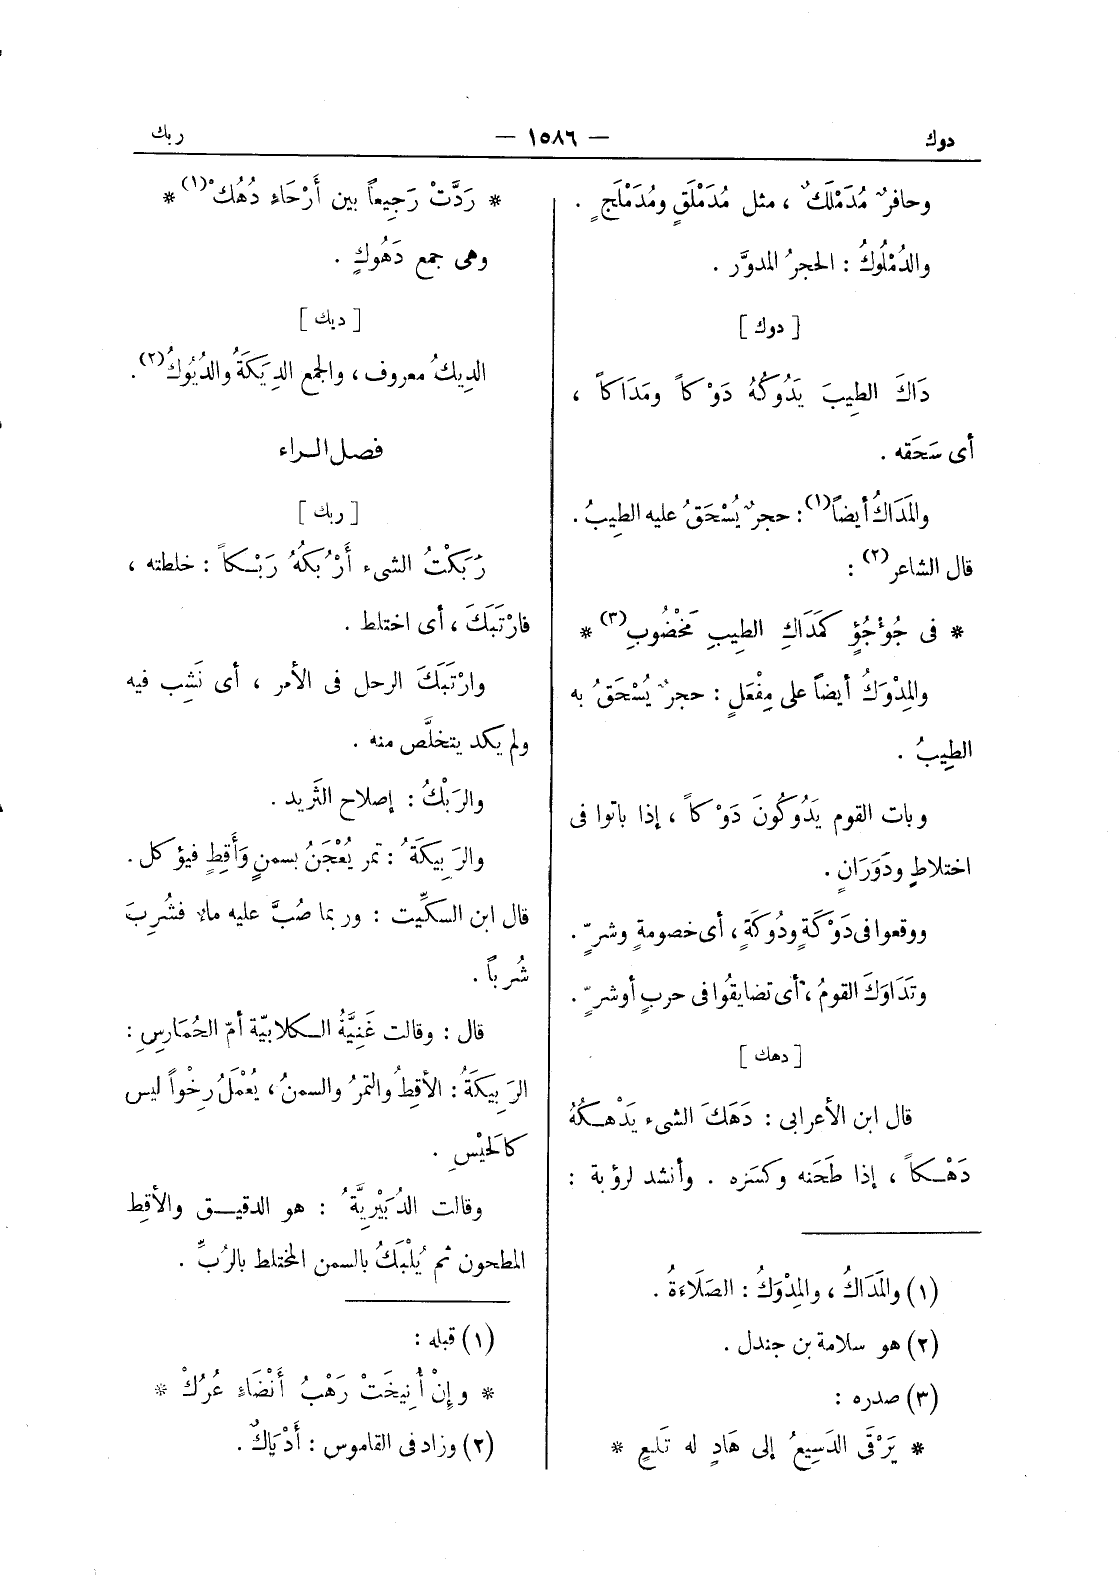 دوك
— ١٥٨٦ —
ربك
وحافرٌ مُدَمْلَكٌ ، مثل مُدَمْلَقٍ ومُدَمْلَجٍ .
والدُمْلُوكُ : الحجرُ المدوَّر .
[ دوك ]
دَاكَ الطيبَ يَدُوكُهُ دَوْكاً ومَدَاكاً ،
أى سَحَقه .
والمَدَاكُ أيضاً(١) : حجرٌ يُسْحَقُ عليه الطيبُ .
قال الشاعر(٢) :
* فى جُؤْجُؤٍ كَمَدَاكِ الطيبِ مَخْضُوبِ(٣) *
والمِدْوَكُ أيضاً على مِفْعَلٍ : حجرٌ يُسْحَقُ به
الطيبُ .
وبات القوم يَدُوكُونَ دَوْكاً ، إذا باتوا فى
اختلاطٍ ودَوَرَانٍ .
ووقعوا فى دَوْكَةٍ ودُوكَةٍ ، أى خصومةٍ وشرٍّ .
وتَدَاوَكَ القومُ ، أى تضايقُوا فى حربٍ أو شرٍّ .
[ دهك ]
قال ابن الأعرابى : دَهَكَ الشىء يَدْهَكُهُ
دَهْكاً ، إذا طَحَنه وكسَره . وأنشد لرؤبة :
(١) والمَدَاكُ ، والمِدْوَكُ : الصَلَاءَةُ .
(٢) هو سلامة بن جندل .
(٣) صدره :
* يَرْقَى الدَسِيعُ إلى هَادٍ له تَلَعٍ *
* رَدَّتْ رَجِيعاً بين أَرْحَاءِ دُهُكْ(١) *
وهى جمع دَهُوكٍ .
[ ديك ]
الدِيكُ معروف ، والجمع الدِيَكَةُ والدُيُوكُ(٢) .
فصل الراء
[ ربك ]
رَبَكْتُ الشىء أَرْبُكُهُ رَبْكاً : خلطته ،
فارْتَبَكَ ، أى اختلط .
وارْتَبَكَ الرجل فى الأمر ، أى نَشِب فيه
ولم يكد يتخلَّص منه .
والرَبْكُ : إصلاح الثَريد .
والرَبِيكَةُ : تمر يُعْجَنُ بسمنٍ وَأَقِطٍ فيؤكل .
قال ابن السكِّيت : وربما صُبَّ عليه ماء فشُرِبَ
شُرباً .
قال : وقالت غَنِيَّةُ الكلابيّة أمّ الحُمَارِسِ :
الرَبِيكَةُ : الأقِطُ والتمرُ والسمنُ ، يُعْمَلُ رِخْواً ليس
كالحَيْسِ .
وقالت الدُبَيْرِيَّةُ : هو الدقيق والأقِط
المطحون ثم يُلْبَكُ بالسمن المختلط بالرُبِّ .
(١) قبله :
* وإنْ أُنيخَتْ رَهْبُ أَنْضَاءِ عُرُكْ *
(٢) وزاد فى القاموس : أَدْيَاكٌ .